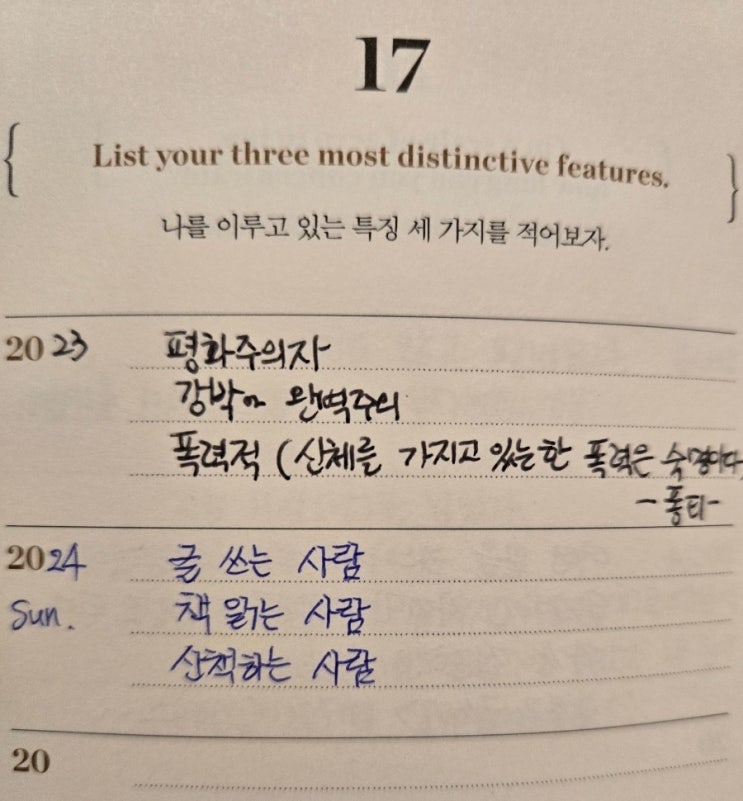 17
List your three most distinctive features.
나를 이루고 있는 특징 세 가지를 적어보자.
2023 평화주의자
강박 완벽주의
폭력적 (신체를 가지고 있는 한 폭력은 숙명이다
-퐁티-
2024 글 쓰는 사람
Sun. 책 읽는 사람
산책하는 사람
20